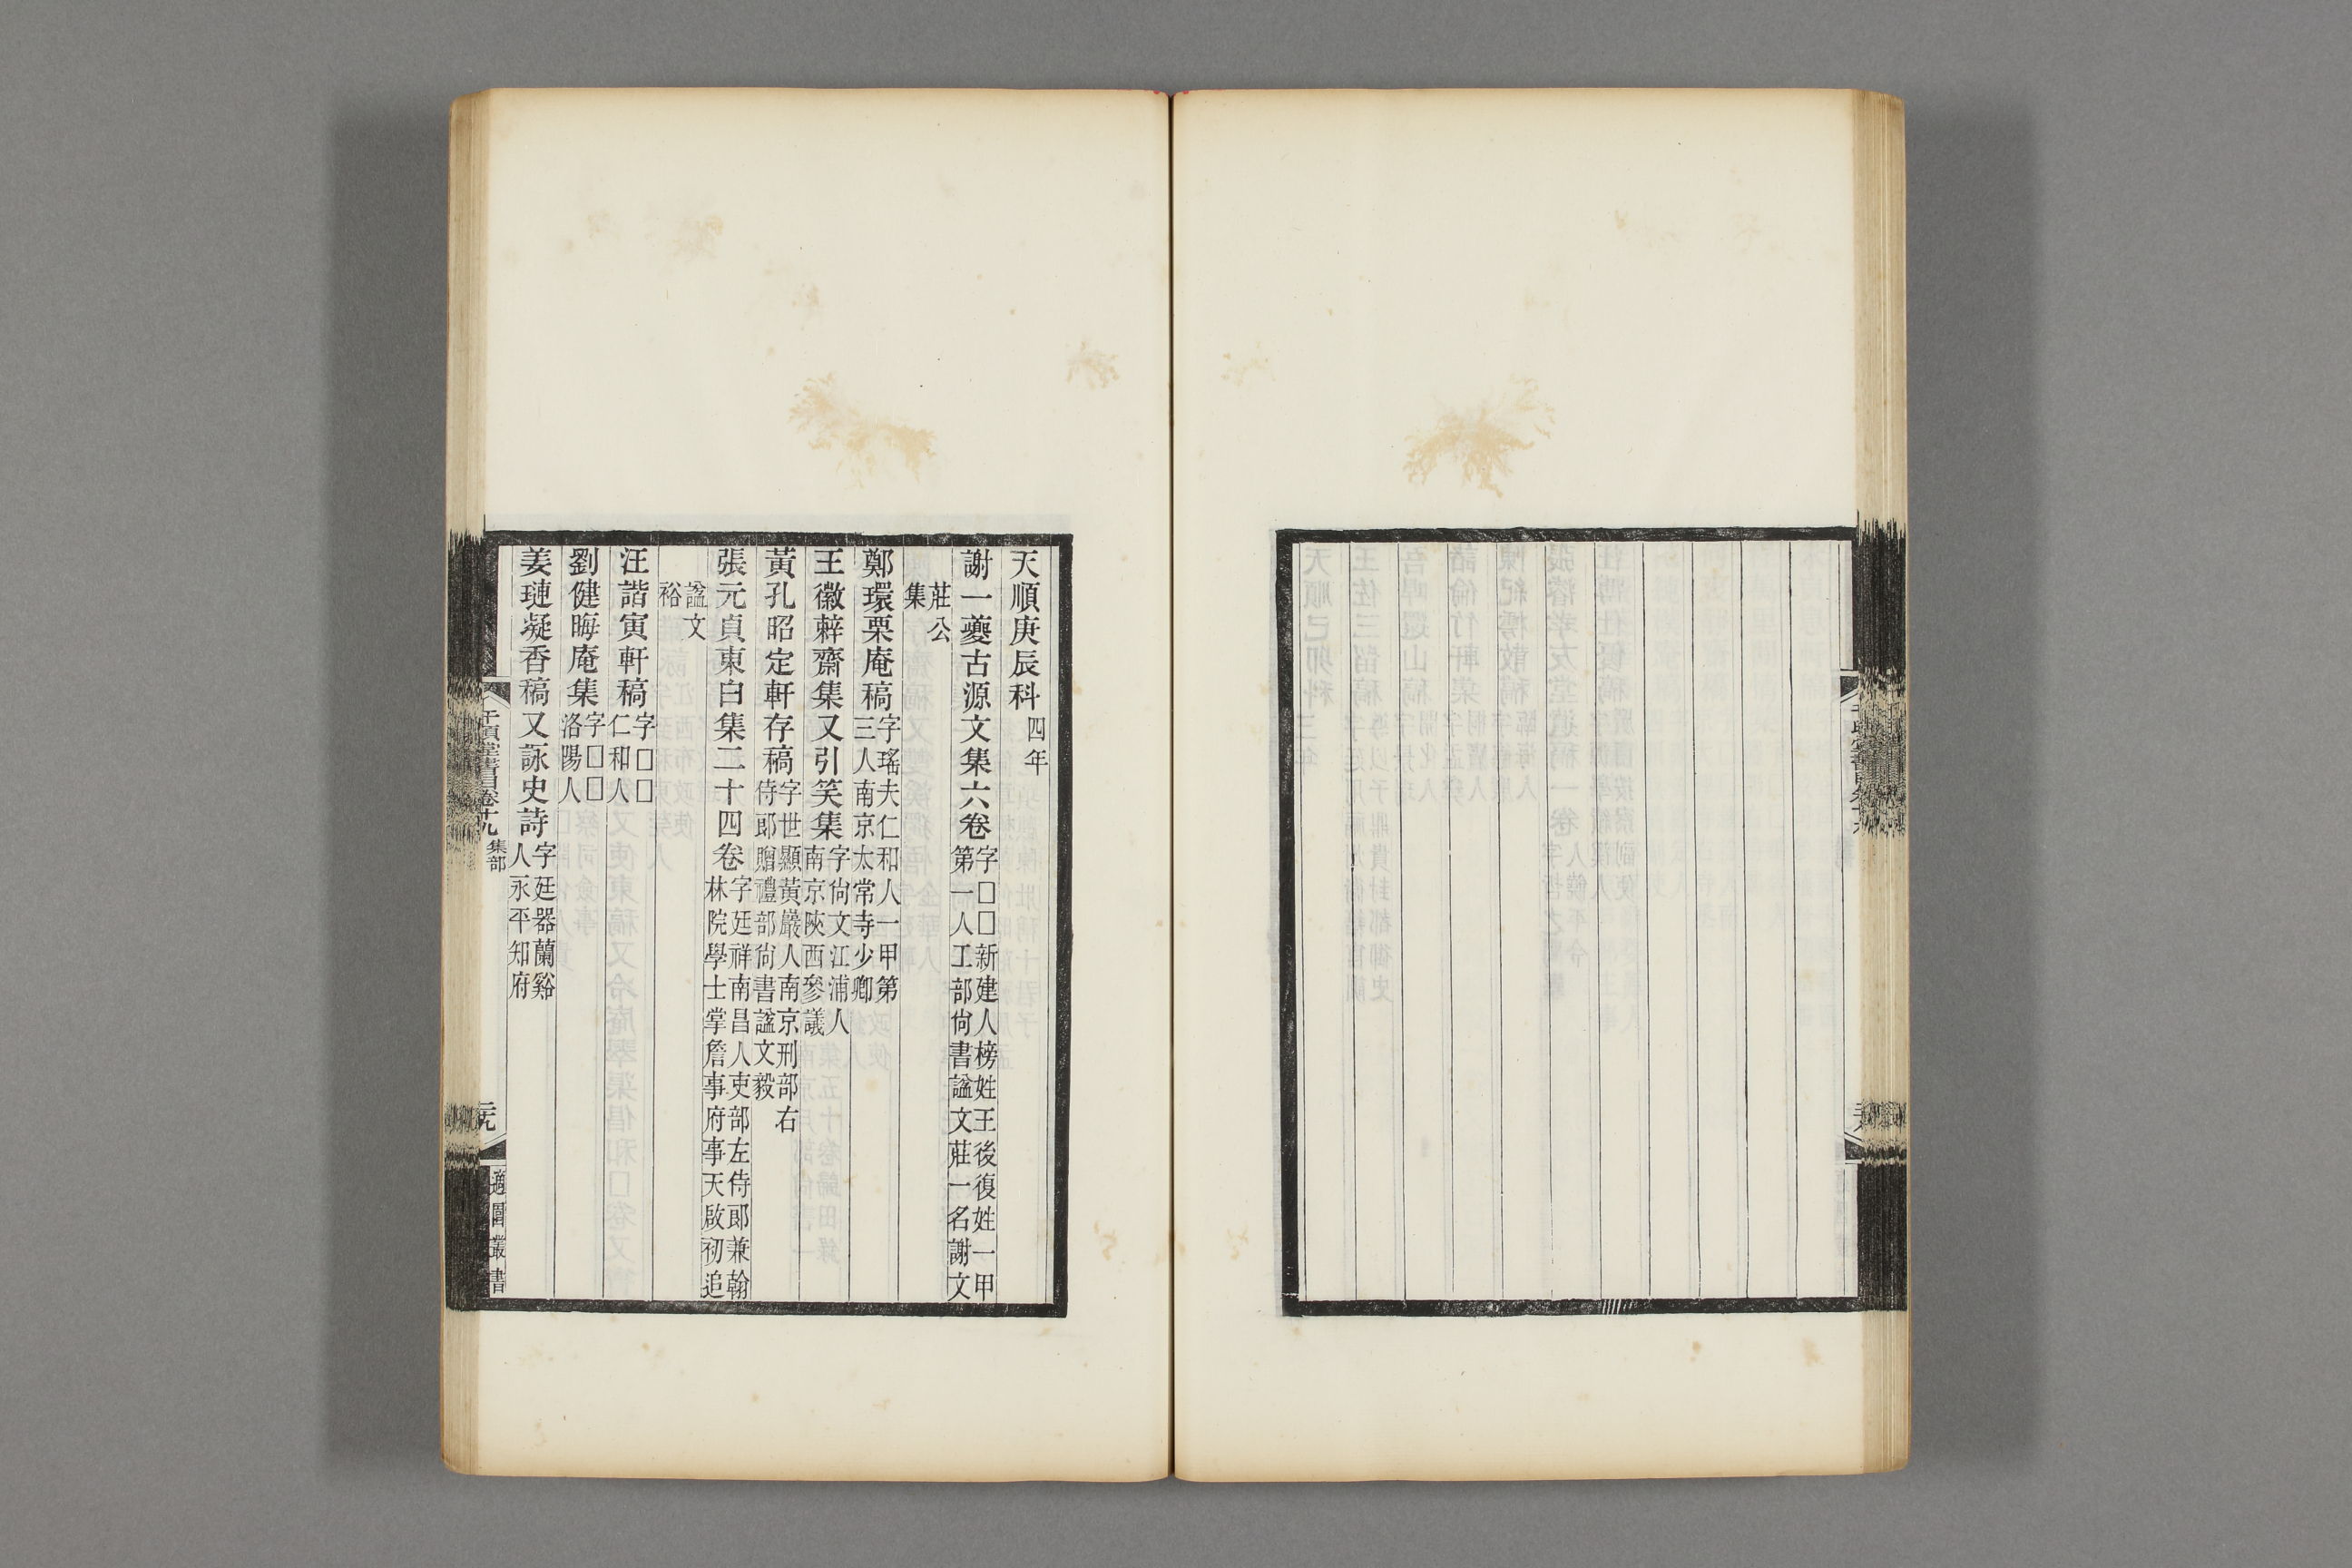 天順庚辰科四年
謝一夔古源文集六卷字□□新建人榜姓王後復姓一甲第一人工部尙書諡文莊一名謝文
莊公集
鄭環栗庵稿字瑤夫仁和人一甲第三人南京太常寺少卿
王徽辣齋集又引笑集字尙文江浦人南京陝西參議
黃孔昭定軒存稿字世顯黃巖人南京刑部右侍郎贈禮部尙書諡文毅
張元貞東白集二十四卷字廷祥南昌人吏部左侍郎兼翰林院學士掌詹事府事天啟初追
諡文裕
汪諧寅軒稿字□□仁和人
劉健晦庵集字□□洛陽人
姜璉凝香稿又詠史詩字廷器蘭谿人永平知府
千頃堂書目卷十九 集部
二十九
適園叢書